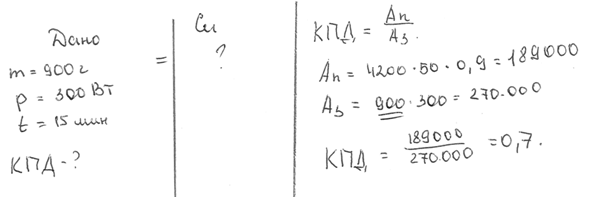 Дано
m = 900 г
p = 300 Вт
t = 15 мин
КПД - ?
=
Си
?
КПД = Aп / Aз.
Aп = 4200 · 50 · 0,9 = 189000
Aз = 900 · 300 = 270.000
КПД = 189000 / 270.000 = 0,7.